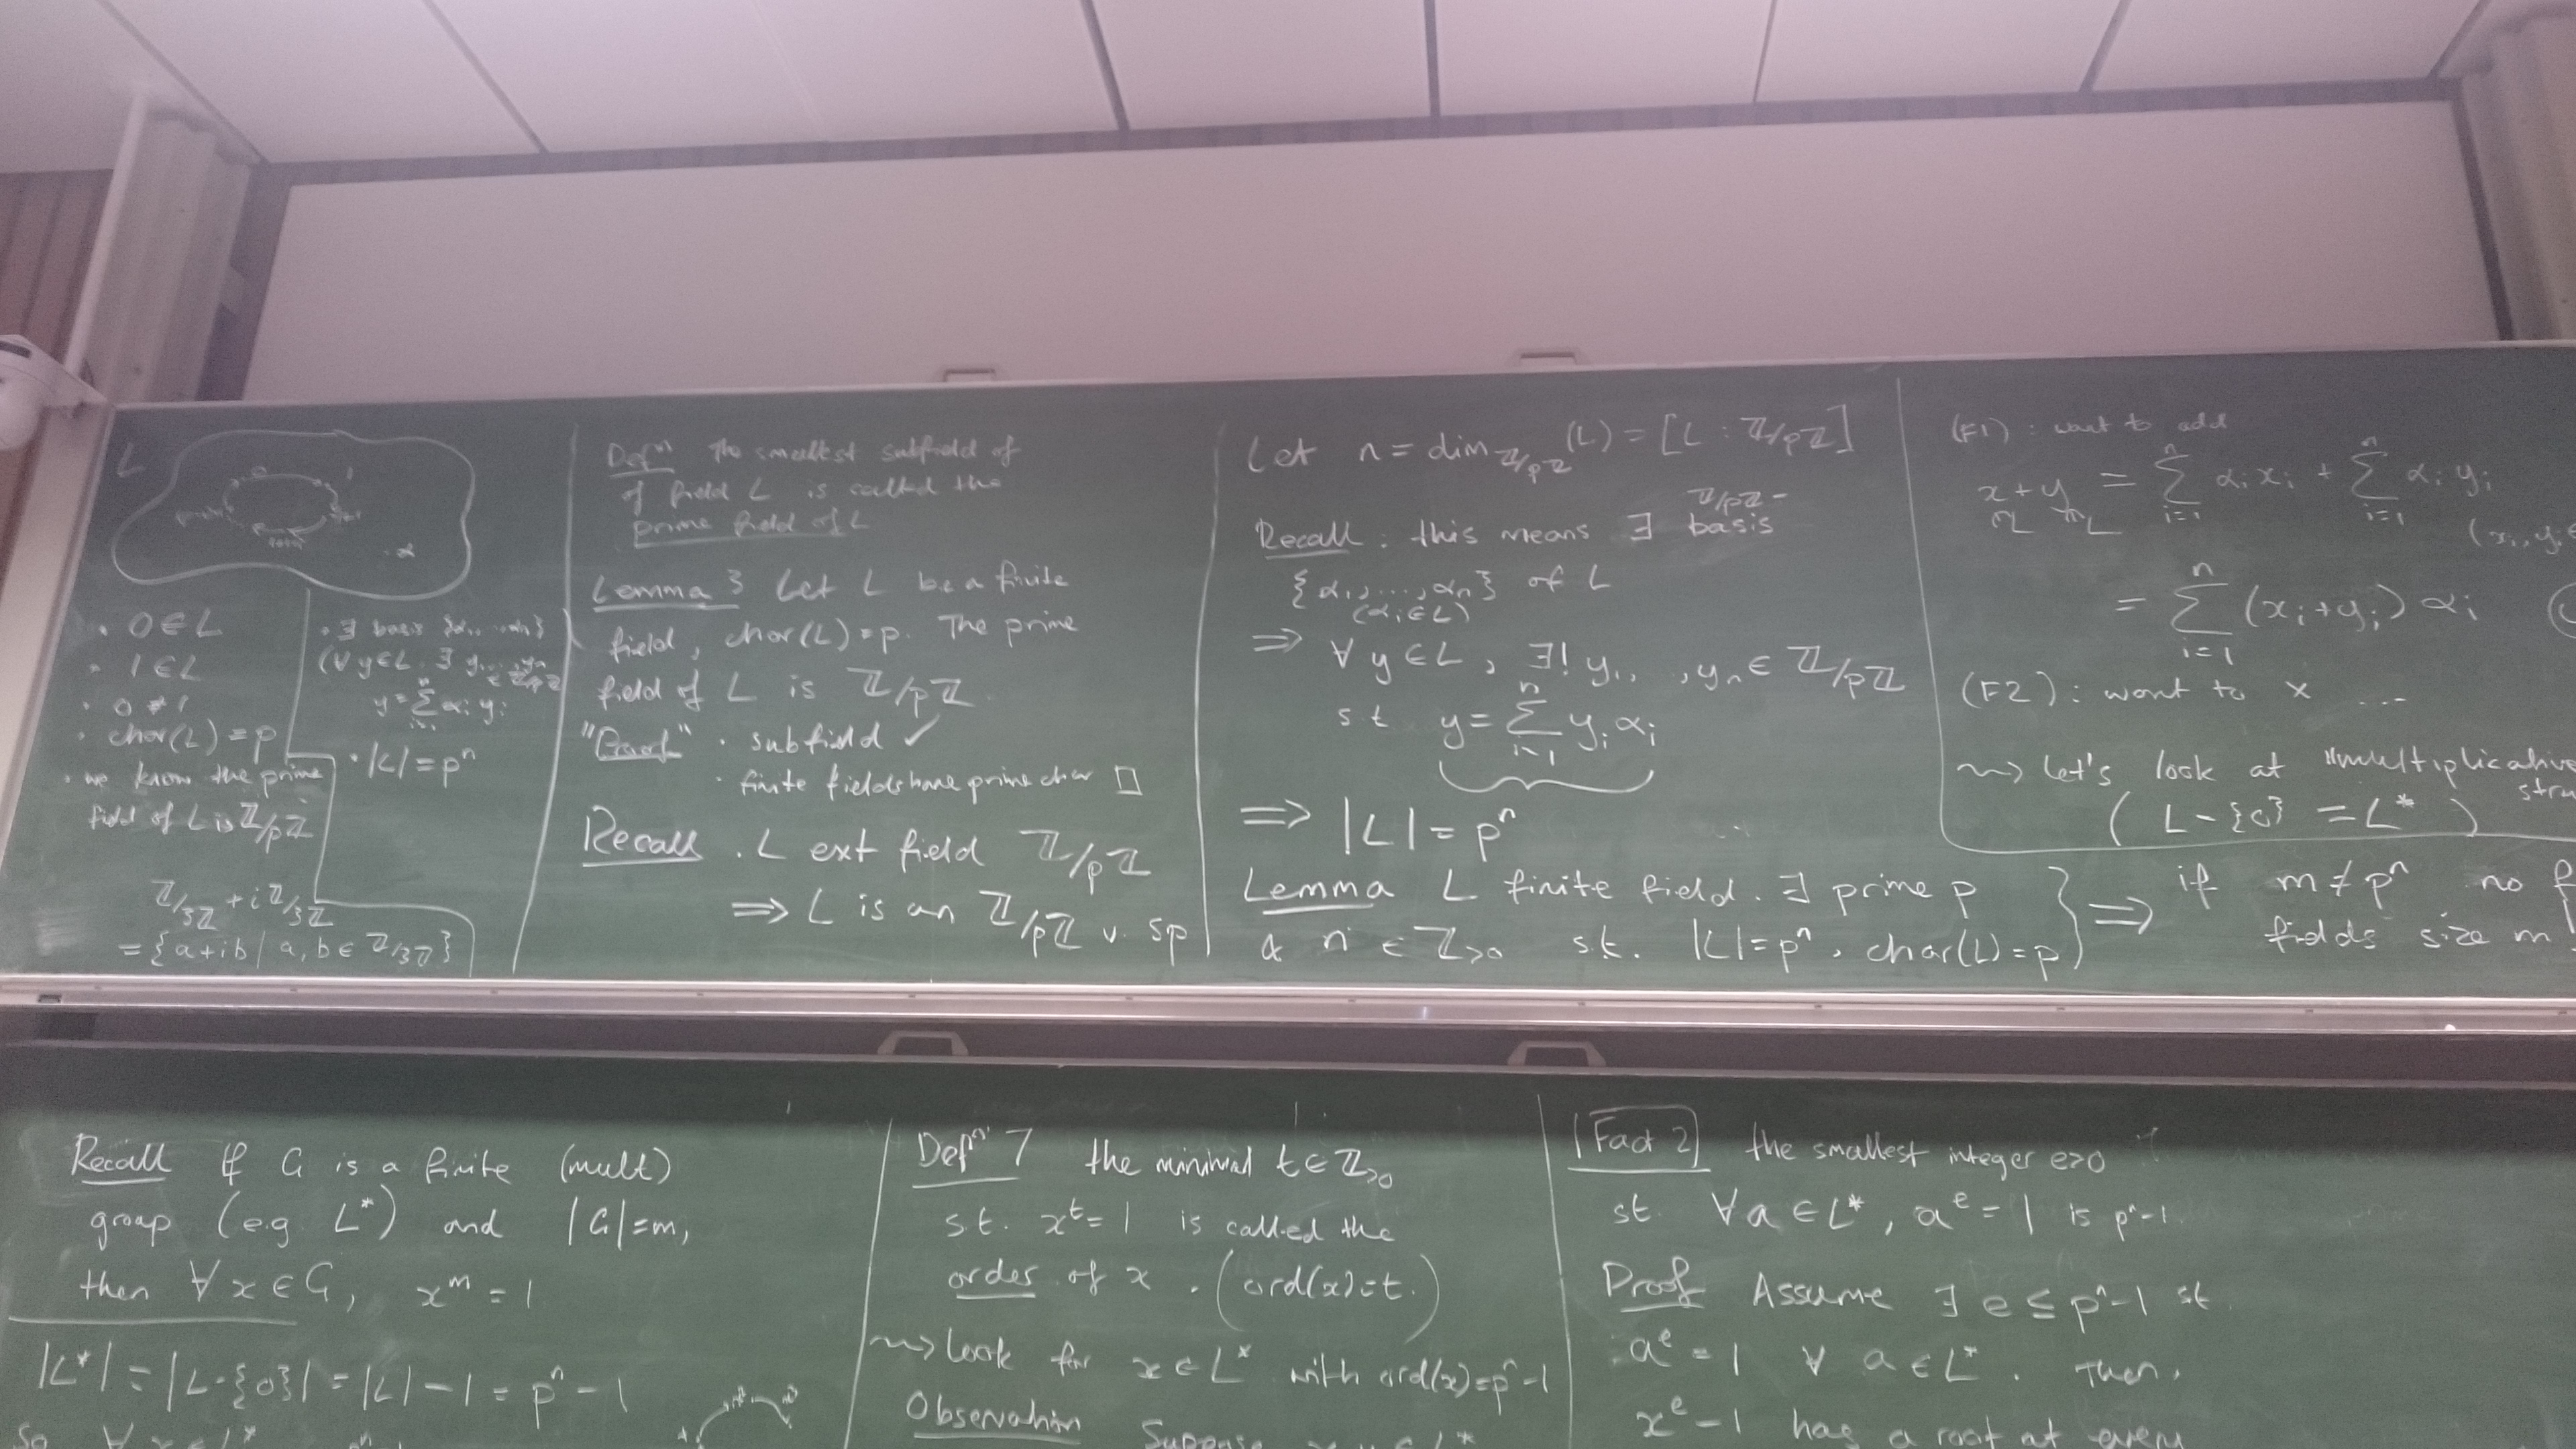 L
· 0 ∈ L
· 1 ∈ L
· 0 ≠ 1
· char(L) = p
· we know the prime
field of L is ℤ/pℤ
· ∃ basis {α₁, ..., αₙ}
(∀ y ∈ L ∃ y₁, ..., yₙ ∈ ℤ/pℤ
y = Σ αᵢ yᵢ
· |L| = pⁿ
ℤ/3ℤ + i ℤ/3ℤ
= {a+ib | a, b ∈ ℤ/3ℤ}
Defⁿ The smallest subfield of
of field L is called the
prime field of L
Lemma 3 Let L be a finite
field, char(L) = p. The prime
field of L is ℤ/pℤ.
"Proof" · subfield ✓
· finite fields have prime char □
Recall . L ext field ℤ/pℤ
⟹ L is an ℤ/pℤ v. sp
Let n = dim_ℤ/pℤ (L) = [L : ℤ/pℤ]
Recall : this means ∃ ℤ/pℤ- basis
{α₁, ..., αₙ} of L
(αᵢ ∈ L)
⟹ ∀ y ∈ L, ∃! y₁, , yₙ ∈ ℤ/pℤ
s.t y = Σⁿᵢ₌₁ yᵢ αᵢ
⟹ |L| = pⁿ
Lemma L finite field. ∃ prime p
& n ∈ ℤ>0 s.t. |L| = pⁿ, char(L) = p
⟹ if m ≠ pⁿ no f
fields size m
(F1) : want to add
x + y = Σⁿᵢ₌₁ αᵢ xᵢ + Σⁿᵢ₌₁ αᵢ yᵢ
∈L ∈L
(xᵢ, yᵢ ∈
= Σⁿᵢ₌₁ (xᵢ + yᵢ) αᵢ
(F2) : want to x ...
⇝ Let's look at "multiplicative
stru
( L - {0} = L* )
Recall If G is a finite (mult)
group (e.g L*) and |G| = m,
then ∀ x ∈ G, xᵐ = 1.
|L*| = |L-{0}| = |L| - 1 = pⁿ - 1
So ∀ x ∈ L*
Defⁿ 7 the minimal t ∈ ℤ>0
s.t. xᵗ = 1 is called the
order of x . (ord(x) = t.)
⇝ Look for x ∈ L* with ord(x) = pⁿ-1
Observation Suppose
Fact 2 the smallest integer e>0
st. ∀ a ∈ L*, aᵉ = 1 is pⁿ-1
Proof Assume ∃ e ≤ pⁿ-1 st.
aᵉ = 1 ∀ a ∈ L*. Then,
xᵉ - 1 has a root at every